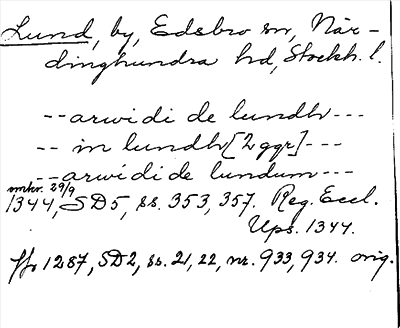 Lund, by, Edsbro sn, När-
dinghundra hd, Stockh. l.
--arwidi de lundh---
-- in lundh [2 ggr]---
--arwidi de lundum---
omkr. 29/9
1344, SD5, ss. 353, 357. Reg. Eccl.
Ups. 1344.
ffr 1287, SD2, ss. 21, 22, nr. 933, 934. orig.